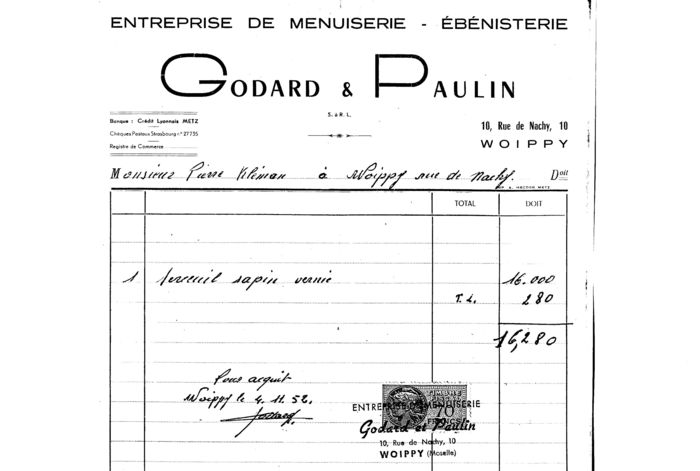 ENTREPRISE DE MENUISERIE - ÉBÉNISTERIE
GODARD & PAULIN
S. à R. L.
Banque : Crédit Lyonnais METZ
Chèques Postaux Strasbourg n° 27735
Registre de Commerce
10, Rue de Nachy, 10
WOIPPY
Monsieur Pierre à Woippy rue de Nachy. Doit
METZ
TOTAL DOIT
1 sapin vernie 16.000
T. L. 280
16,280
Pour acquit
Woippy le 4.11.52.
TIMBRE
10
FRANCS
ENTREPRISE DE MENUISERIE
Godard et Paulin
10, Rue de Nachy, 10
WOIPPY (Moselle)